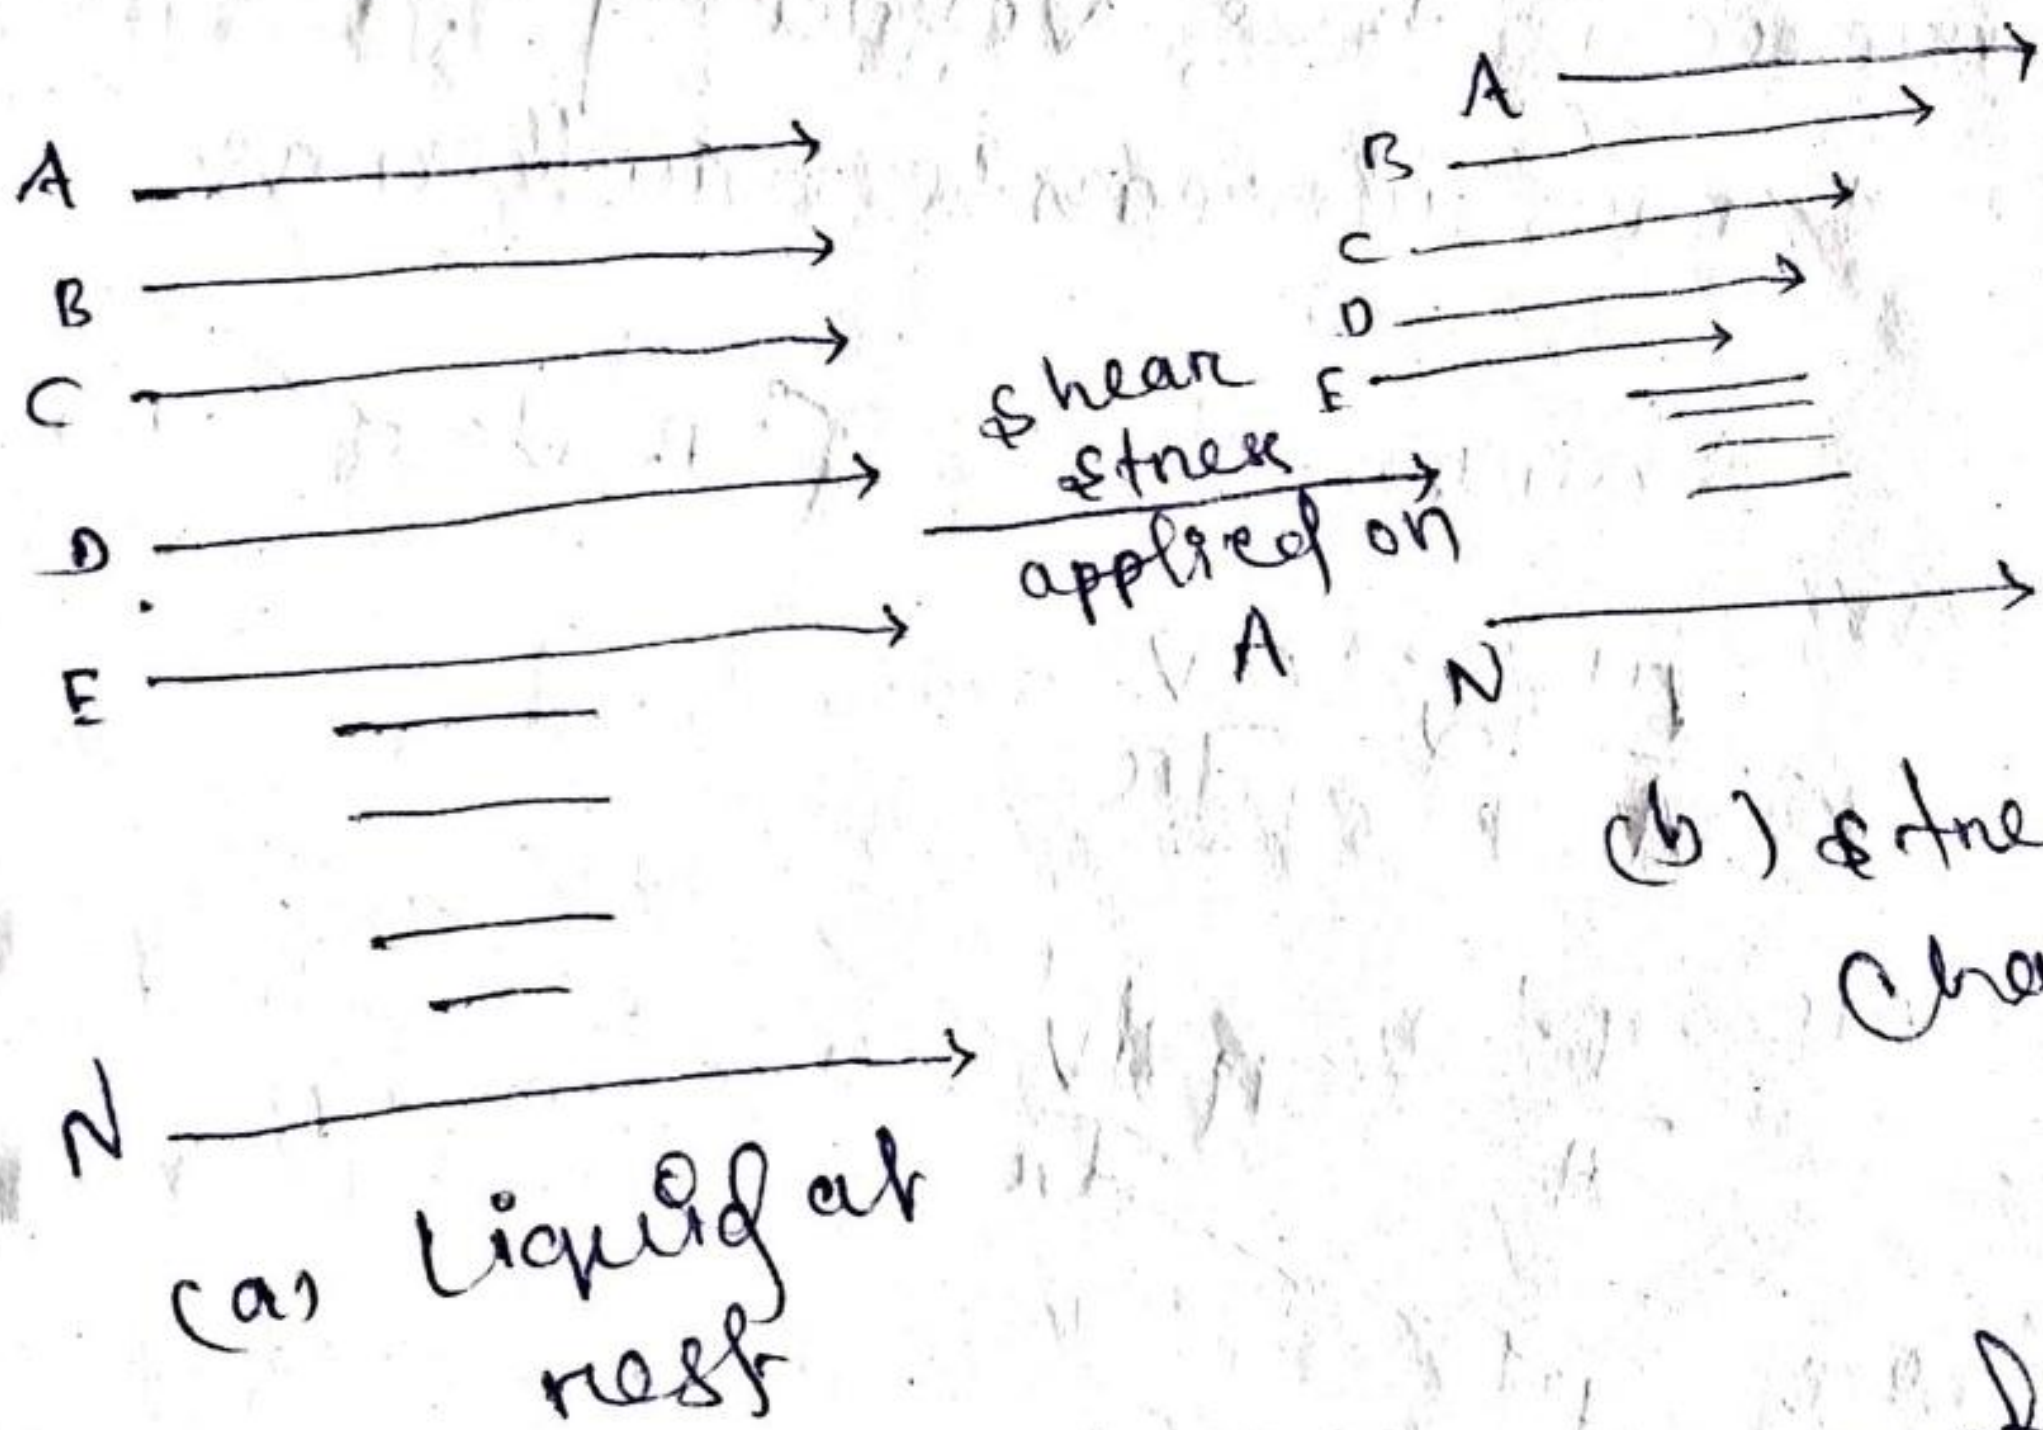 A
B
C
D
E
N
(a) Liquid at
rest
shear
stress
applied on
A
A
B
C
D
E
N
(b) stre
Cha